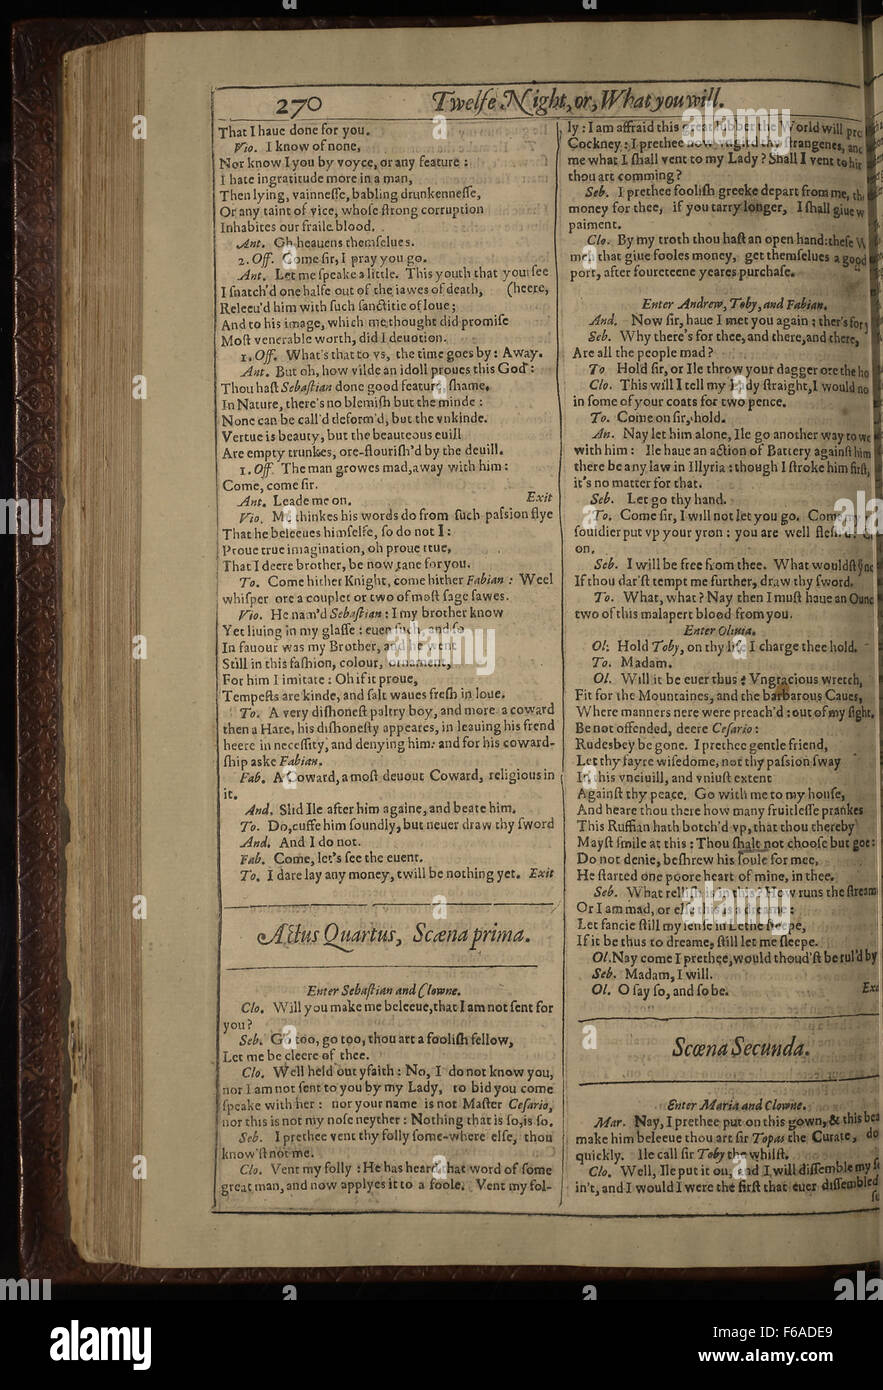 270
Twelfe Night, or, What you will.
That I haue done for you.
Vio. I know of none,
Nor know I you by voyce, or any feature :
I hate ingratitude more in a man,
Then lying, vainneſſe, babling drunkenneſſe,
Or any taint of vice, whoſe ſtrong corruption
Inhabites our fraile blood.
Ant. Oh heauens themſelues.
2. Off. Come ſir, I pray you go.
Ant. Let me ſpeake a little. This youth that you ſee
I ſnatch'd one halfe out of the iawes of death, (heere,
Releeu'd him with ſuch ſanctitie of loue;
And to his image, which me thought did promiſe
Moſt venerable worth, did I deuotion.
1. Off. What's that to vs, the time goes by: Away.
Ant. But oh, how vilde an idoll proues this God:
Thou haſt Sebaſtian done good feature, ſhame.
In Nature, there's no blemiſh but the minde :
None can be call'd deform'd, but the vnkinde.
Vertue is beauty, but the beauteous euill
Are empty trunkes, ore-flouriſh'd by the deuill.
1. Off. The man growes mad, away with him :
Come, come ſir.
Ant. Leade me on. Exit
Vio. Me thinkes his words do from ſuch paſsion flye
That he beleeues himſelfe, ſo do not I :
Proue true imagination, oh proue true,
That I deere brother, be now tane for you.
To. Come hither Knight, come hither Fabian : Weel
whiſper ore a couplet or two of moſt ſage ſawes.
Vio. He nam'd Sebaſtian : I my brother know
Yet liuing in my glaſſe : euen ſuch, and ſo
In fauour was my Brother, and he went
Still in this faſhion, colour, ornament,
For him I imitate : Oh if it proue,
Tempeſts are kinde, and ſalt waues freſh in loue.
To. A very diſhoneſt paltry boy, and more a coward
then a Hare, his diſhoneſty appeares, in leauing his frend
heere in neceſſity, and denying him: and for his coward-
ſhip aske Fabian.
Fab. A Coward, a moſt deuout Coward, religious in
it.
And. Slid Ile after him againe, and beate him.
To. Do, cuffe him ſoundly, but neuer draw thy ſword
And. And I do not.
Fab. Come, let's ſee the euent.
To. I dare lay any money, twill be nothing yet. Exit
Actus Quartus, Scæna prima.
Enter Sebaſtian and Clowne.
Clo. Will you make me beleeue, that I am not ſent for
you?
Seb. Go too, go too, thou art a fooliſh fellow,
Let me be cleere of thee.
Clo. Well held out yfaith : No, I do not know you,
nor I am not ſent to you by my Lady, to bid you come
ſpeake with her : nor your name is not Maſter Ceſario,
nor this is not my noſe neyther : Nothing that is ſo, is ſo.
Seb. I prethee vent thy folly ſome-where elſe, thou
know'ſt not me.
Clo. Vent my folly : He has heard that word of ſome
great man, and now applyes it to a foole. Vent my fol-
ly : I am affraid this great lubber the World will
Cockney : I prethee now vngird thy ſtrangenes,
me what I ſhall vent to my Lady ? Shall I vent to hir
thou art comming ?
Seb. I prethee fooliſh greeke depart from me,
money for thee, if you tarry longer, I ſhall giue
paiment.
Clo. By my troth thou haſt an open hand: theſe
men that giue fooles money, get themſelues a good
port, after foureteene yeares purchaſe.
Enter Andrew, Toby, and Fabian.
And. Now ſir, haue I met you again : ther's for
Seb. Why there's for thee, and there, and there,
Are all the people mad ?
To Hold ſir, or Ile throw your dagger ore the ho
Clo. This will I tell my Lady ſtraight, I would no
in ſome of your coats for two pence.
To. Come on ſir, hold.
An. Nay let him alone, Ile go another way to
with him : Ile haue an action of Battery againſt him
there be any law in Illyria : though I ſtroke him firſt,
it's no matter for that.
Seb. Let go thy hand.
To. Come ſir, I will not let you go. Come my
ſouldier put vp your yron : you are well fleſh'd :
on.
Seb. I will be free from thee. What wouldſt
If thou dar'ſt tempt me further, draw thy ſword.
To. What, what ? Nay then I muſt haue an Ounc
two of this malapert blood from you.
Enter Oliuia.
Ol. Hold Toby, on thy life I charge thee hold.
To. Madam.
Ol. Will it be euer thus ? Vngracious wretch,
Fit for the Mountaines, and the barbarous Caues,
Where manners nere were preach'd : out of my ſight.
Be not offended, deere Ceſario :
Rudesbey be gone. I prethee gentle friend,
Let thy fayre wiſedome, not thy paſsion ſway
In this vnciuill, and vniuſt extent
Againſt thy peace. Go with me to my houſe,
And heare thou there how many fruitleſſe prankes
This Ruffian hath botch'd vp, that thou thereby
Mayſt ſmile at this : Thou ſhalt not chooſe but goe:
Do not denie, beſhrew his ſoule for mee,
He ſtarted one poore heart of mine, in thee.
Seb. What relliſh is in this ? How runs the ſtream
Or I am mad, or elſe this is a dreame :
Let fancie ſtill my ſenſe in Lethe ſteepe,
If it be thus to dreame, ſtill let me ſleepe.
Ol. Nay come I prethee, would thoud'ſt be rul'd by
Seb. Madam, I will.
Ol. O ſay ſo, and ſo be. Exe
Scœna Secunda.
Enter Maria and Clowne.
Mar. Nay, I prethee put on this gown, & this bea
make him beleeue thou art ſir Topas the Curate, do
quickly. Ile call ſir Toby the whilſt.
Clo. Well, Ile put it on, and I will diſſemble my ſ
in't, and I would I were the firſt that euer diſſembled
alamy
Image ID: F6ADE9
www.alamy.com